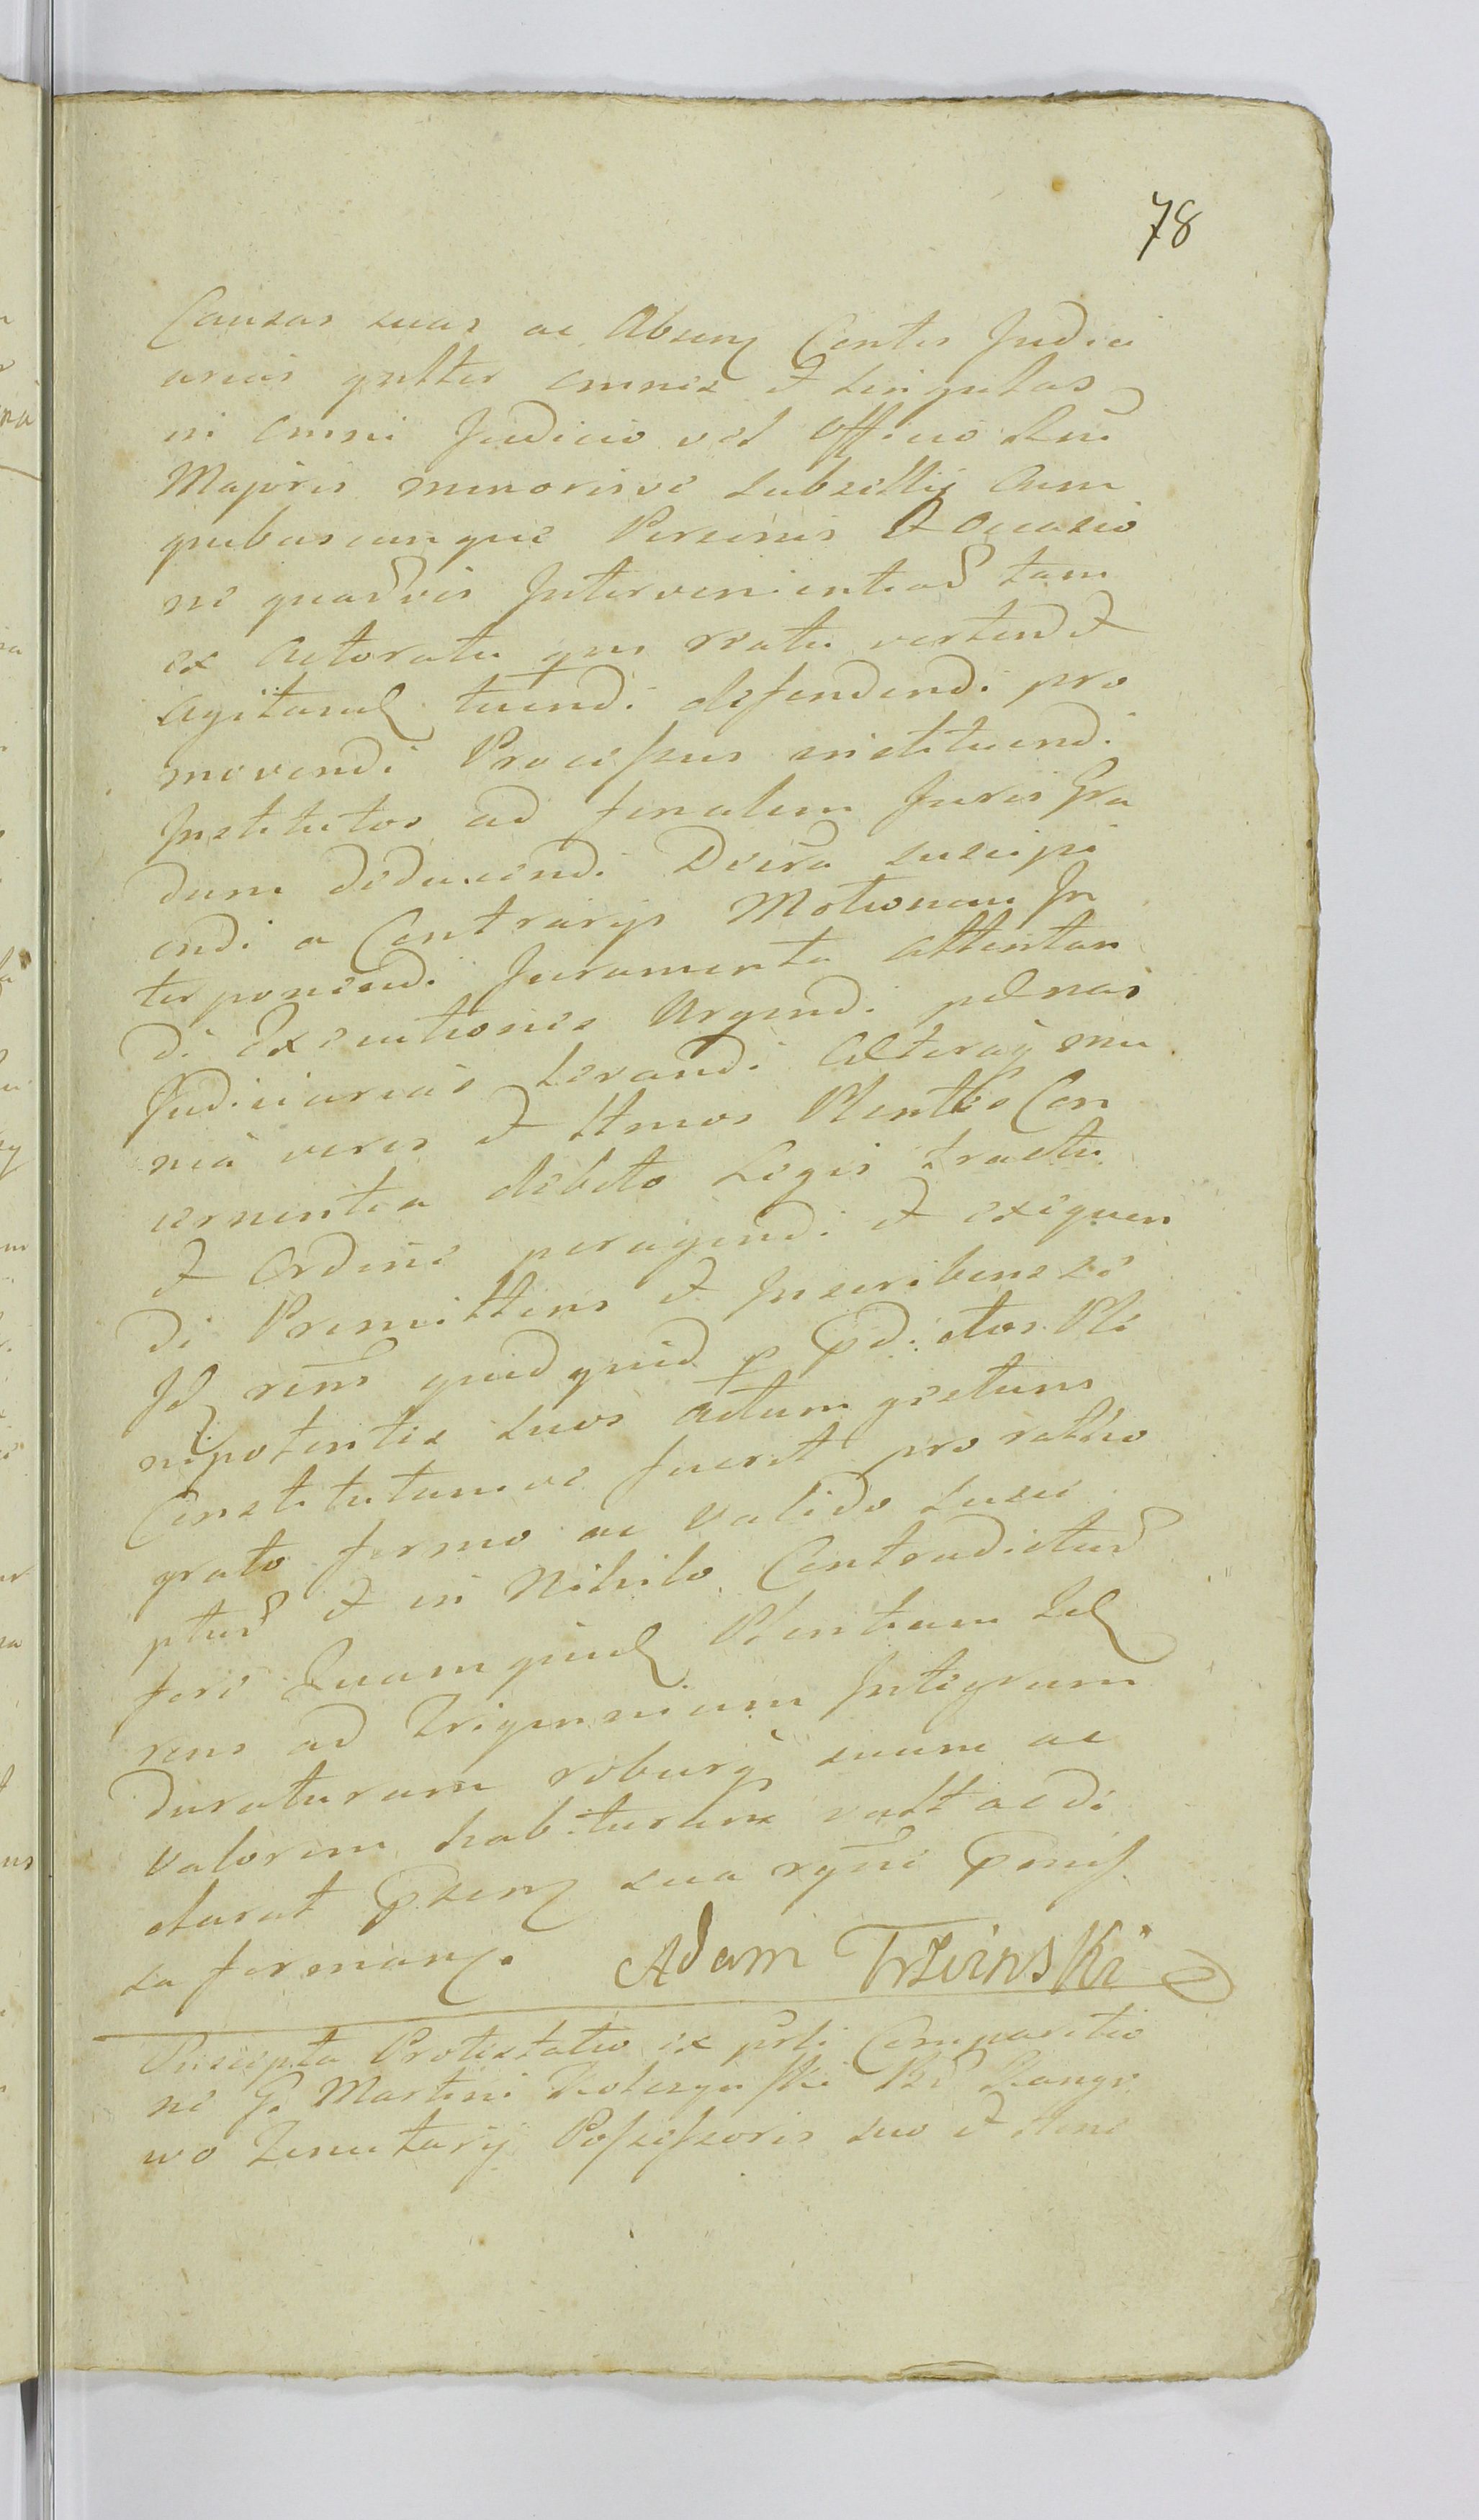 78
Causas suas ac Absenz Contes Judici
arias gntter omnes et singulas
in omni Judicio vel Officio Rni
Majoris minorisve subsellij Cum
quibuscunque Personis et Occasio
ne quavis Intervenientiad tam
ex Actoratu qm reatu vertend et
agitand tuendi defendendi pro
movendi Processus instituendi
Institutos ad finalem Juris Gra
dum deducendi Decra suscipi
endi a Contrarijs Motionem In
terponendi Juramenta attentan
di Executiones Urgendi pænas
Judiciarias levandi Cæteraq omn
nia veres et Amos Plenttes Con
cernentia debito Legis tractu
et Ordine peragendi et exequen
di Promittens et Inscribens se
Id rem quidquid p pdictos Ple
nipotentes suos Actum gestum
Constitutumve fuerit pro ratho
grato firmo ac valido susce
pturd et in Nihilo Contradictur
fore Quamquid Plentiam
rens ad Triennium Integrum
duraturam roburq suum ac
valorem habituram vult ac de
clarat psenz sua
sa firmanz. Adam Trzcinski
Suscepta Protestatio ex psli Comparitio
ne G. Martini
wo Tenutarij Possessoris suo et